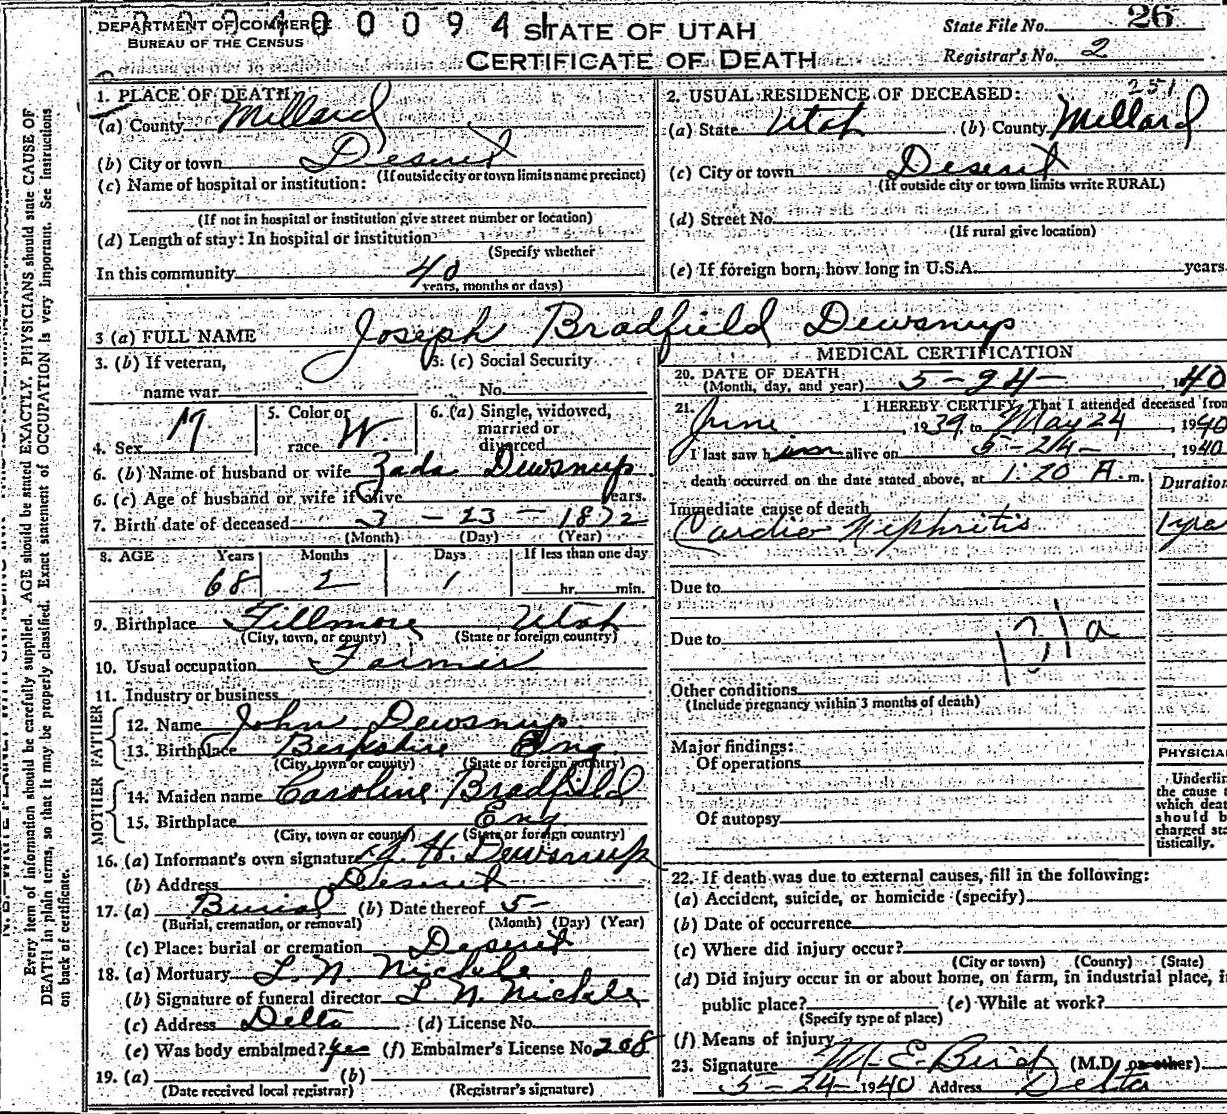 DEPARTMENT OF COMMERCE
BUREAU OF THE CENSUS
0 0 9 4 1
STATE OF UTAH
CERTIFICATE OF DEATH
State File No. 26
Registrar's No. 2
Every item of information should be carefully supplied. AGE should be stated EXACTLY. PHYSICIANS should state CAUSE OF
DEATH in plain terms, so that it may be properly classified. Exact statement of OCCUPATION is very important. See Instructions
on back of certificate.
1. PLACE OF DEATH
(a) County Millard
(b) City or town Deseret
(If outside city or town limits name precinct)
(c) Name of hospital or institution:
(If not in hospital or institution give street number or location)
(d) Length of stay: In hospital or institution
(Specify whether
In this community 40
years, months or days)
2. USUAL RESIDENCE OF DECEASED: 251
(a) State Utah (b) County Millard
(c) City or town Deseret
(If outside city or town limits write RURAL)
(d) Street No.
(If rural give location)
(e) If foreign born, how long in U.S.A. years
3 (a) FULL NAME Joseph Bradfield Dewsnup
3. (b) If veteran,
name war
3. (c) Social Security
No.
4. Sex M
5. Color or
race W.
6. (a) Single, widowed,
married or
divorced
6. (b) Name of husband or wife Zada Dewsnup
6. (c) Age of husband or wife if alive years.
7. Birth date of deceased 3 - 23 - 1872
(Month) (Day) (Year)
8. AGE Years Months Days If less than one day
68 2 1 hr. min.
9. Birthplace Fillmore Utah
(City, town, or county) (State or foreign country)
10. Usual occupation Farmer
11. Industry or business
FATHER
12. Name John Dewsnup
13. Birthplace Berkshire Eng
(City, town or county) (State or foreign country)
MOTHER
14. Maiden name Caroline Bradfield
15. Birthplace Eng
(City, town or county) (State or foreign country)
16. (a) Informant's own signature H. Dewsnup
(b) Address Deseret
17. (a) Burial (b) Date thereof 5-
(Burial, cremation, or removal) (Month) (Day) (Year)
(c) Place: burial or cremation Deseret
18. (a) Mortuary L N Nickle
(b) Signature of funeral director L N. Nickle
(c) Address Delta (d) License No.
(e) Was body embalmed? yes (f) Embalmer's License No. 208
19. (a) (b)
(Date received local registrar) (Registrar's signature)
MEDICAL CERTIFICATION
20. DATE OF DEATH
(Month, day, and year) 5-24- 1940
21. I HEREBY CERTIFY, That I attended deceased from
June, 1939 to May 24, 1940
I last saw him alive on 5-24-, 1940
death occurred on the date stated above, at 1:20 A.m.
Duration
Immediate cause of death
Cardio Nephritis
Due to
Due to
131a
Other conditions
(Include pregnancy within 3 months of death)
Major findings:
Of operations
Of autopsy
PHYSICIA
Underlin
the cause
which dea
should b
charged sta
tistically.
22. If death was due to external causes, fill in the following:
(a) Accident, suicide, or homicide (specify)
(b) Date of occurrence
(c) Where did injury occur?
(City or town) (County) (State)
(d) Did injury occur in or about home, on farm, in industrial place, i
public place? (e) While at work?
(Specify type of place)
(f) Means of injury
23. Signature M. E. Bird (M.D. or other)
5-24-1940 Address Delta